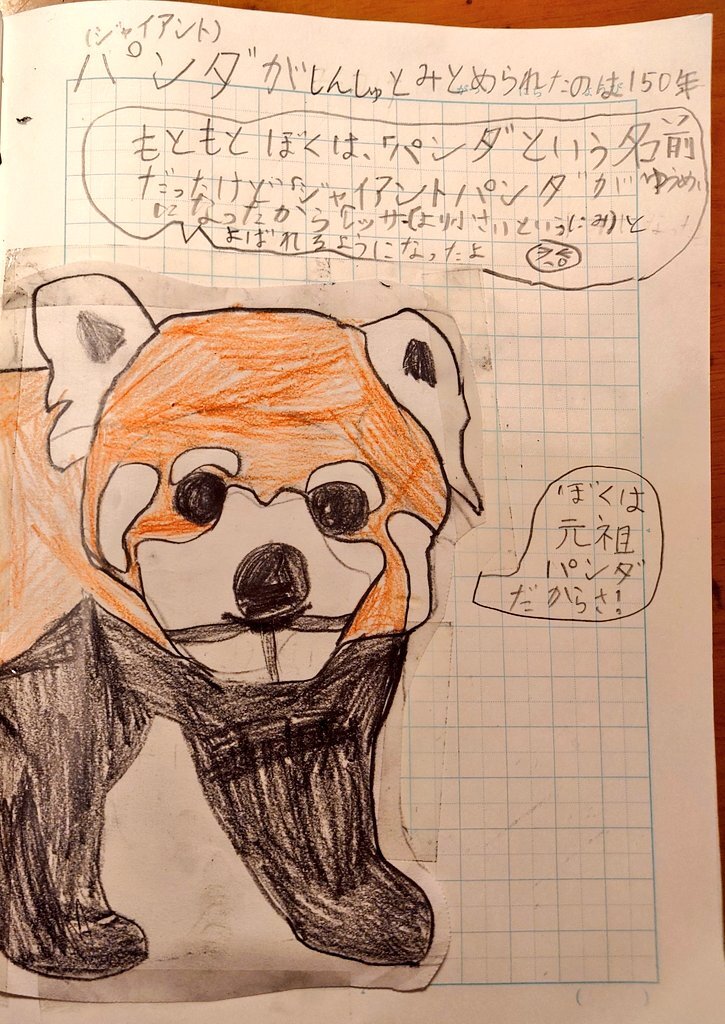 (ジャイアント)
パンダがしんしゅとみとめられたのは150年
もともとぼくは、「パンダという名前
だったけど「ジャイアントパンダ」がゆうめい
になったから「レッサー(より小さいといういみ)と
よばれるようになったよ
ぼくは
元祖
パンダ
だからさ!